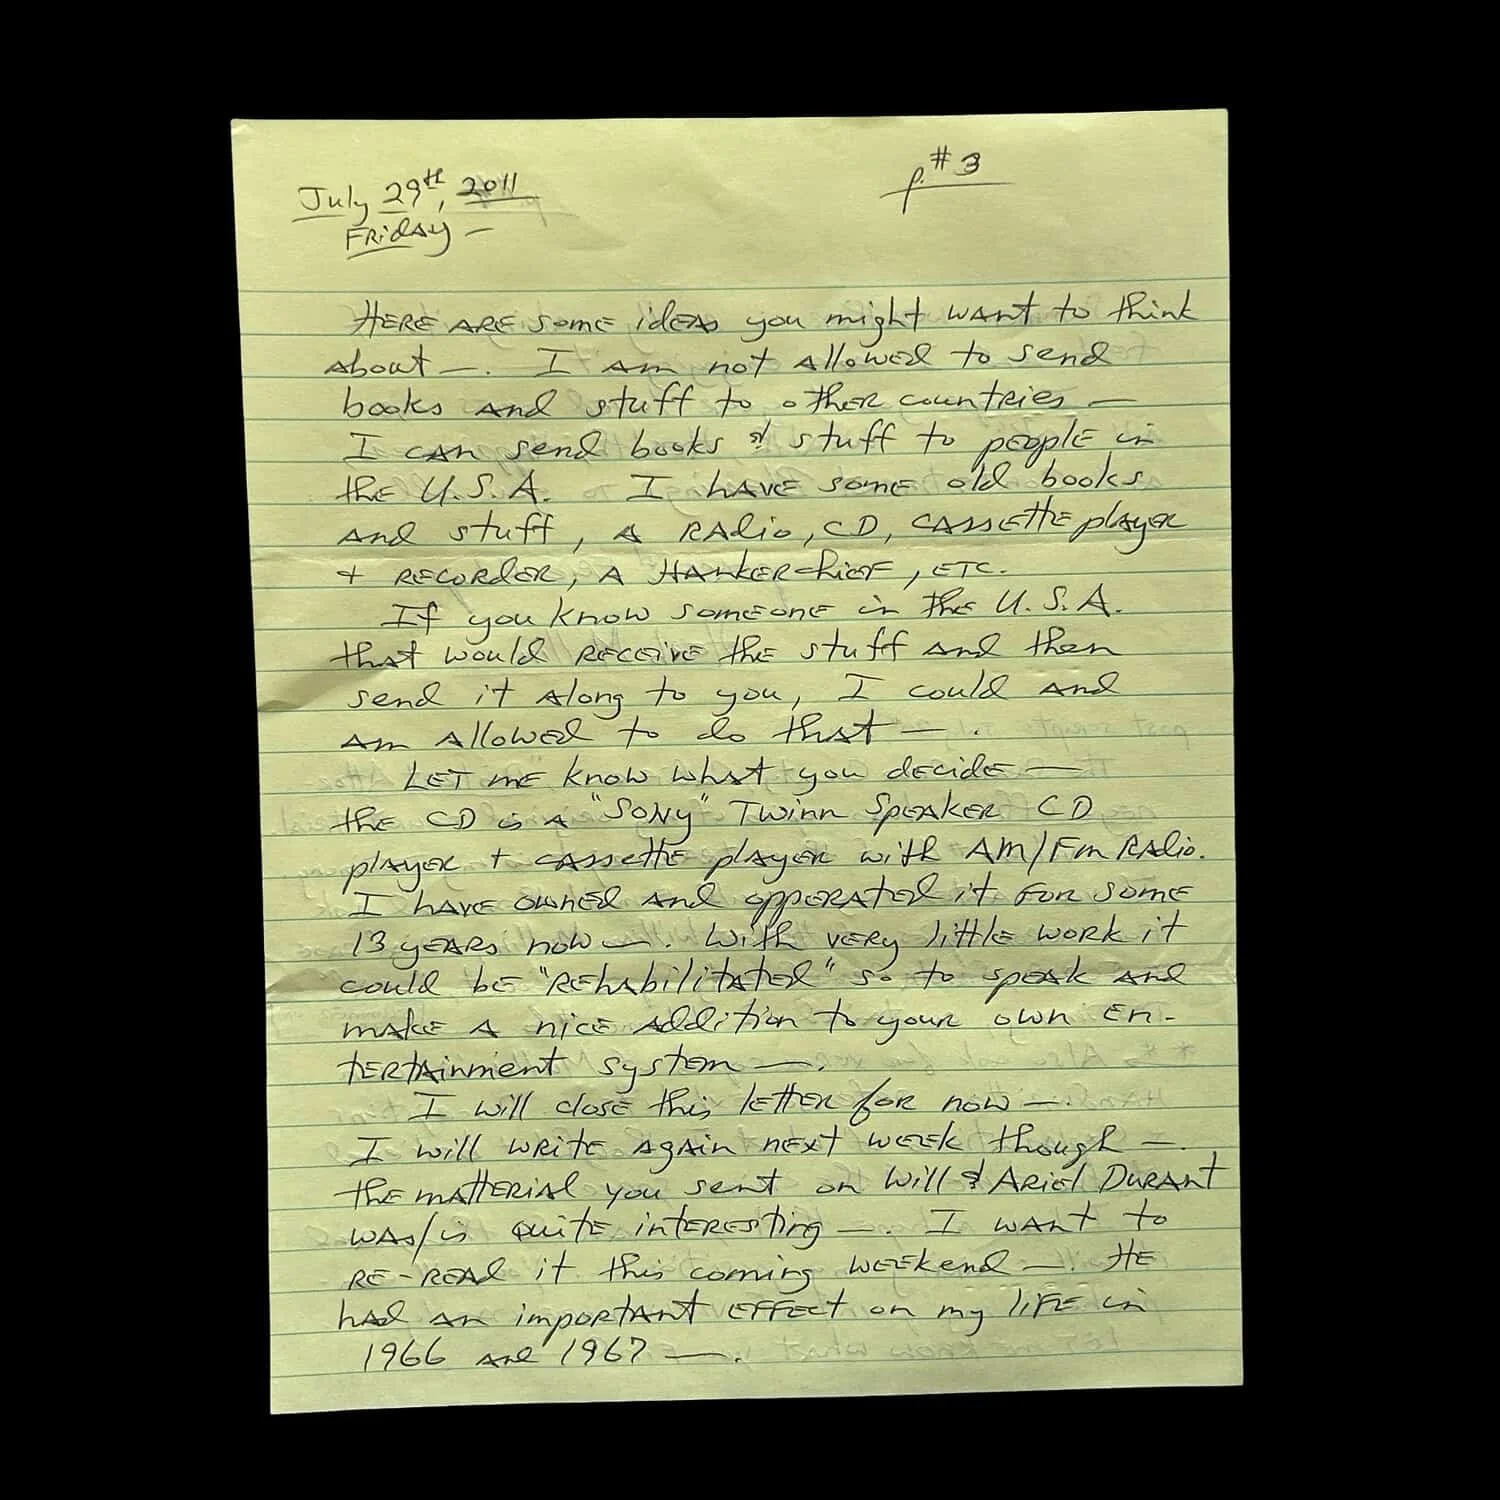 p. #3
July 29th, 2011
Friday —
Here are some ideas you might want to think
about —. I am not allowed to send
books and stuff to other countries —
I can send books & stuff to people in
the U.S.A. I have some old books
and stuff, a radio, CD, cassette player
+ recorder, a hankerchief, etc.
If you know someone in the U.S.A.
that would receive the stuff and then
send it along to you, I could and
am allowed to do that —.
Let me know what you decide —
the CD is a "Sony" Twinn Speaker CD
player + cassette player with AM/FM Radio.
I have owned and opperated it for some
13 years now —. With very little work it
could be "rehabilitated" so to speak and
make a nice addition to your own en-
tertainment system —.
I will close this letter for now —.
I will write again next week though —.
the matterial you sent on Will & Ariel Durant
was/is quite interesting —. I want to
re-read it this coming weekend —. He
had an important effect on my life in
1966 and 1967 —.